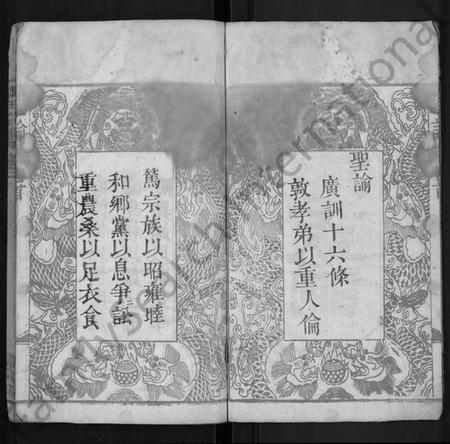 聖諭
廣訓十六條
敦孝弟以重人倫
篤宗族以昭雍睦
和鄉黨以息爭訟
重農桑以足衣食